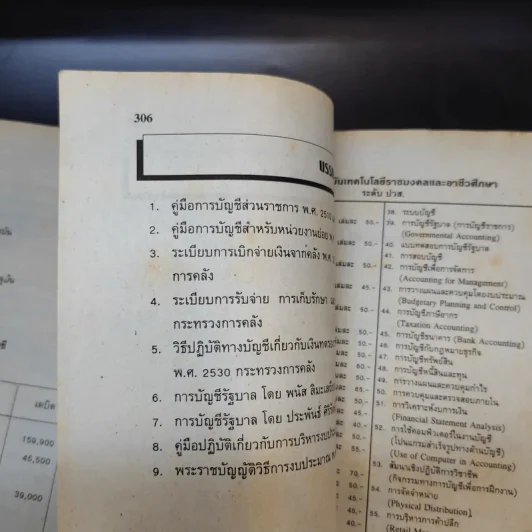 306
บรรณ
1. คู่มือการบัญชีส่วนราชการ พ.ศ. 2510
2. คู่มือการบัญชีสำหรับหน่วยงานย่อย พ.ศ.
3. ระเบียบการเบิกจ่ายเงินจากคลัง พ.ศ.
การคลัง
4. ระเบียบการรับจ่าย การเก็บรักษา
กระทรวงการคลัง
5. วิธีปฏิบัติทางบัญชีเกี่ยวกับเงินทดรอง
พ.ศ. 2530 กระทรวงการคลัง
6. การบัญชีรัฐบาล โดย พนัส สิมะเสถียร
7. การบัญชีรัฐบาล โดย ประพันธ์ ศิริ
8. คู่มือปฏิบัติเกี่ยวกับการบริหารงบประ
9. พระราชบัญญัติวิธีการงบประมาณ
เทคโนโลยีราชมงคลและอาชีวศึกษา
ระดับ ปวส.
38. ระบบบัญชี
เล่มละ 50.- 39. การบัญชีรัฐบาล (การบัญชีราชการ)
(Governmental Accounting)
เล่มละ 50.- 40. แบบทดสอบการบัญชีรัฐบาล
41. การสอบบัญชี
เล่มละ 50.- 42. การบัญชีเพื่อการจัดการ
(Accounting for Management)
เล่มละ 45.- 43. การวางแผนและควบคุมโดยงบประมาณ
(Budgetary Planning and Control)
44. การบัญชีภาษีอากร
(Taxation Accounting)
45. การบัญชีธนาคาร (Bank Accounting)
46. การบัญชีกับกฎหมายธุรกิจ
47. การบัญชีทรัพย์สิน
48. การบัญชีหนี้สินและทุน
49. การวางแผนและควบคุมกำไร
50. การควบคุมและตรวจสอบภายใน
51. การวิเคราะห์งบการเงิน
(Financial Statement Analysis)
52. การใช้คอมพิวเตอร์ในงานบัญชี
(โปรแกรมสำเร็จรูปทางด้านบัญชี)
(Use of Computer in Accounting)
53. สัมนาเชิงปฏิบัติการวิชาชีพ
(กิจกรรมทางการบัญชีเพื่อการฝึกงาน)
54. การจัดจำหน่าย
(Physical Distribution)
55. การบริหารการค้าปลีก
(Retail
เดบิต
159,900
45,500
39,000